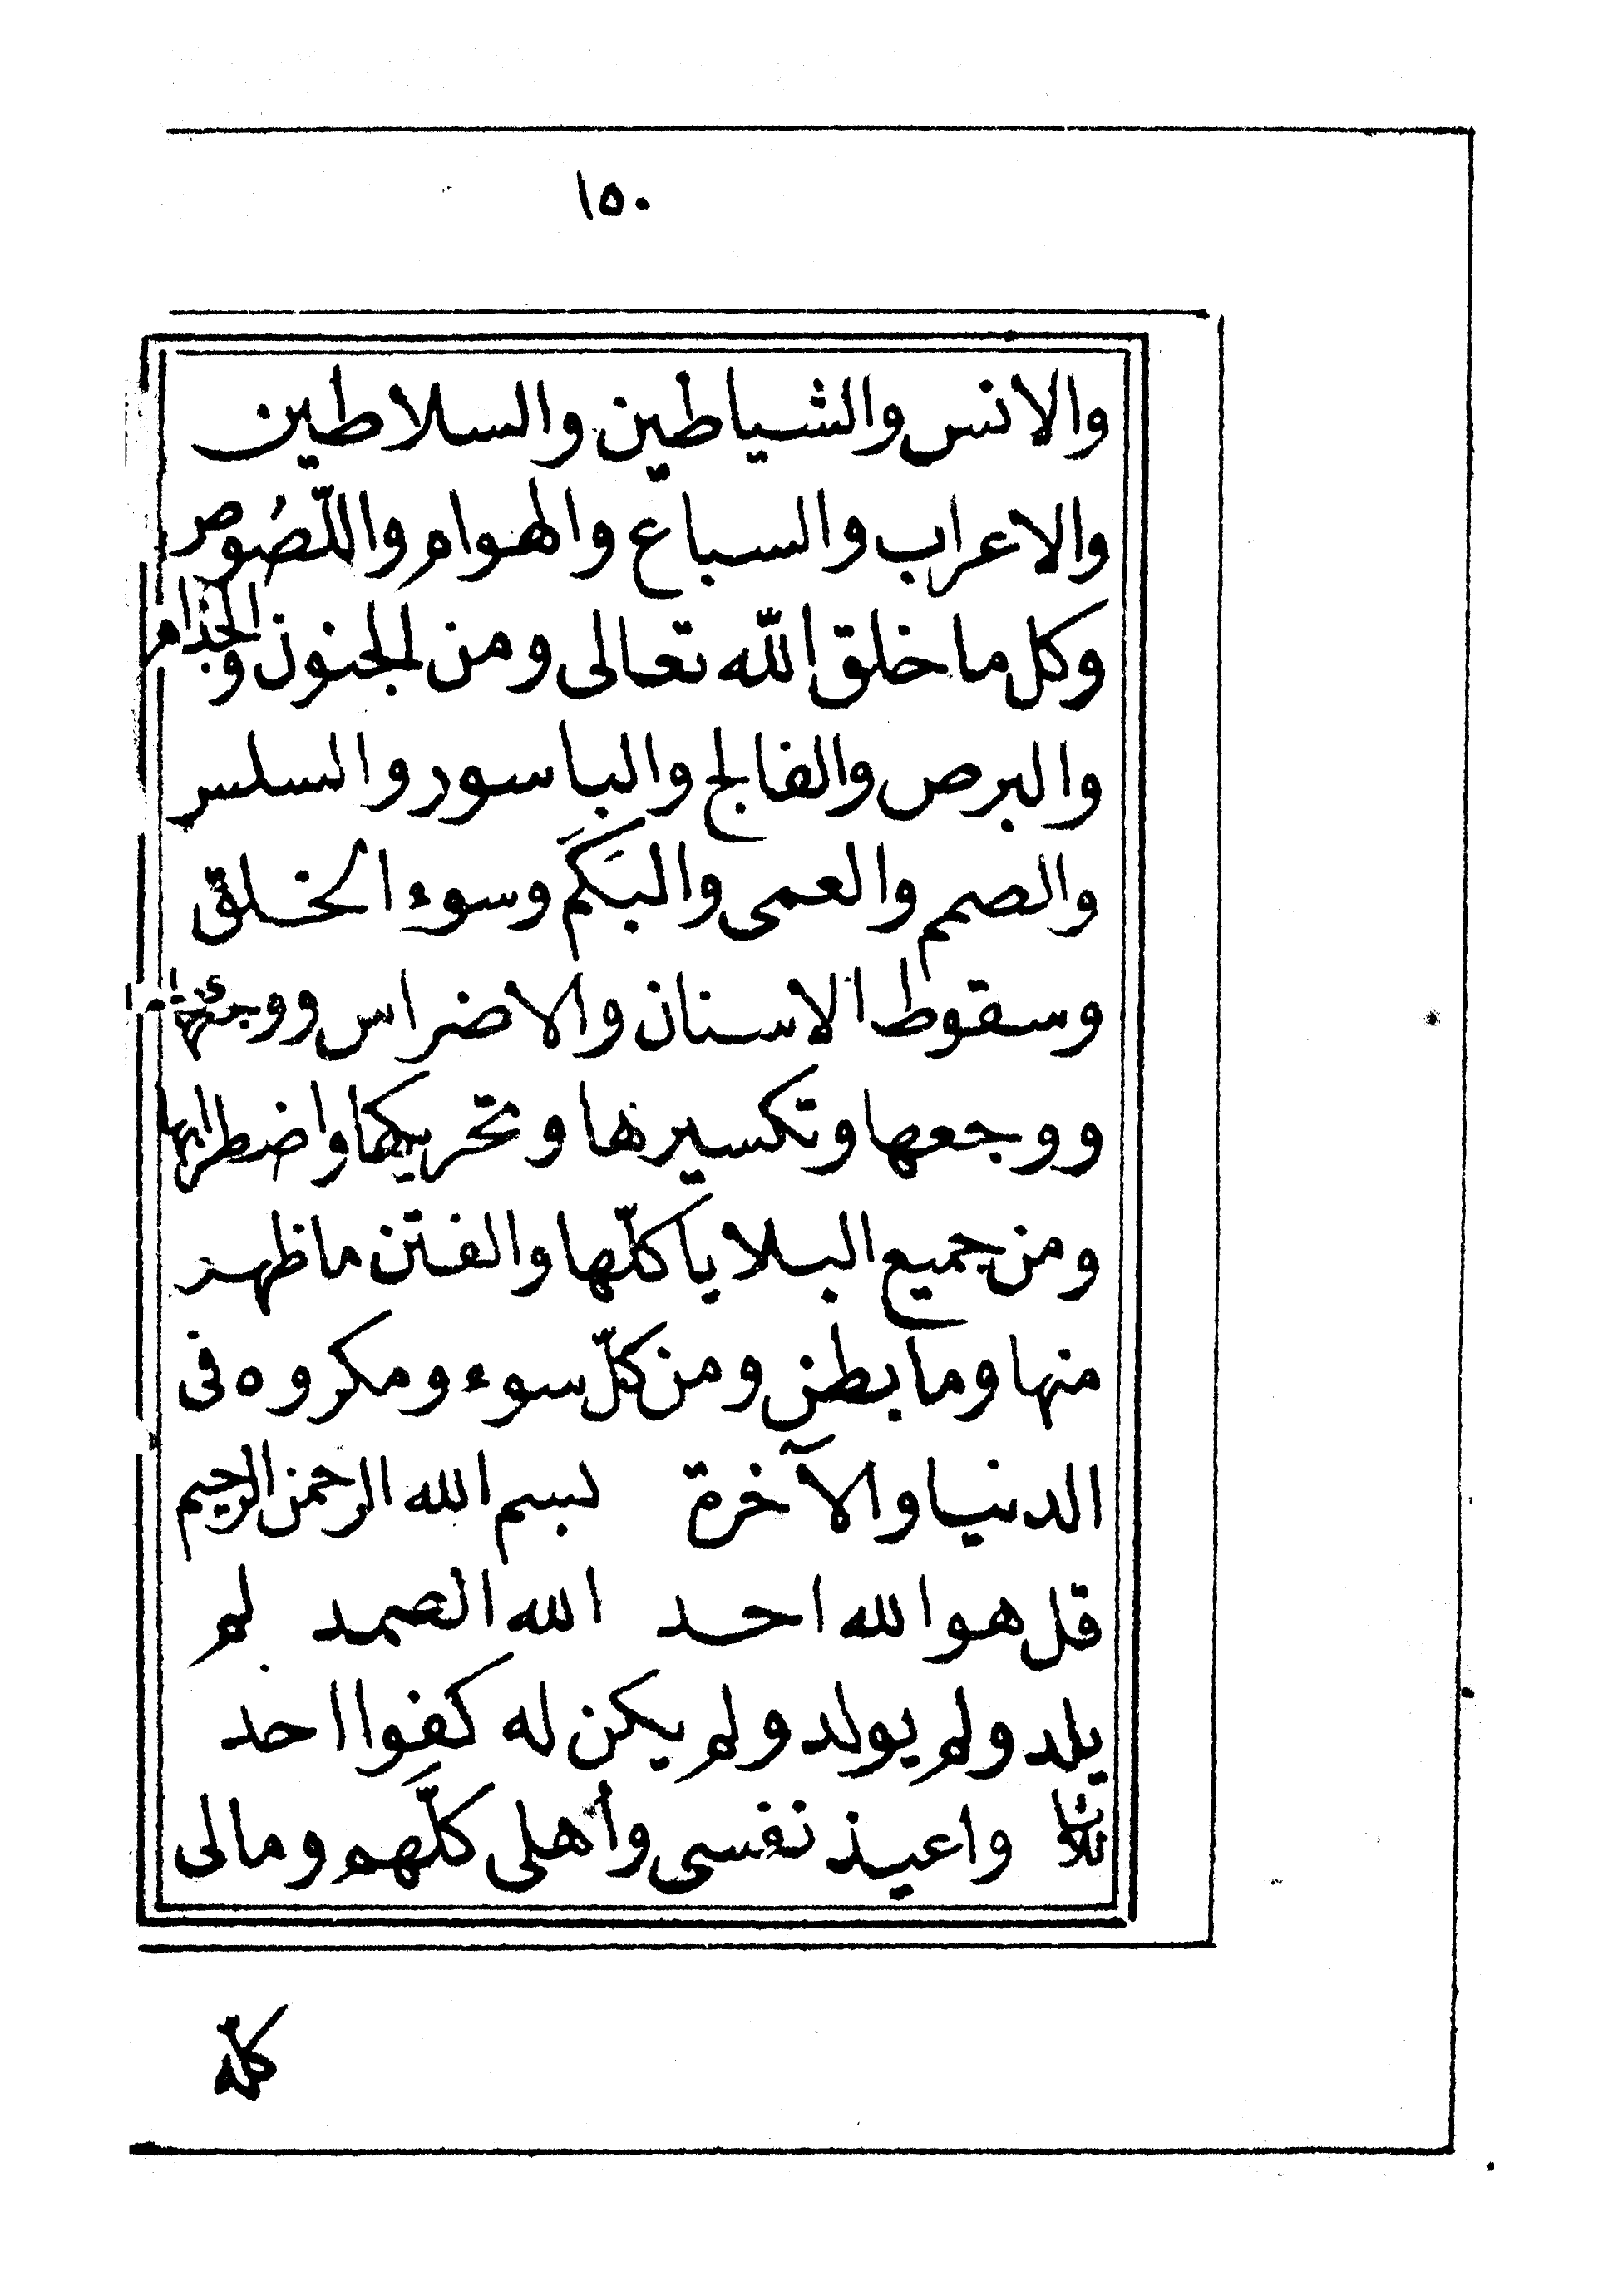 ١٥٠
والانس والشياطين والسلاطين
والاعراب والسباع والهوام واللّصُوص
وكل ما خلق اللّه تعالى ومن الجنون والجذام
والبرص والفالج والباسور والسلس
والصم والعمى والبَكَم وسوء الخلق
وسقوط الاسنان والاضراس و
ووجعها وتكسيرها وتحريكها واضطرابها
ومن جميع البلايا كلّها والفتن ما ظهر
منها وما بطن ومن كلّ سوء ومكروه فى
الدنيا والآخرة بسم الله الرحمن الرحيم
قل هو الله احد الله الصمد لم
يلد ولم يولد ولم يكن له كفوا احد
ثلاثا واعيذ نفسى وأهلى كلّهم ومالى
كلّه